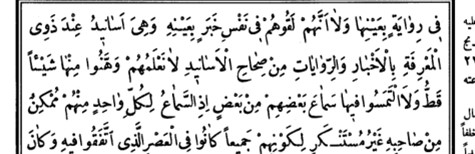 فى رِوَايَةٍ بِعَيْنِهَا وَلَا أَنَّهُمْ لَقُوهُمْ فى نَفْسِ خَبَرٍ بِعَيْنِهِ وَهِىَ اَسَانِيدُ عِنْدَ ذَوِى
الْمَعْرِفَةِ بِالْاَخْبَارِ وَالرِّوَايَاتِ مِنْ صِحَاحِ الْاَسَانِيدِ لَا نَعْلَمُهُمْ وَهَّنُوا مِنْهَا شَيْئاً
قَطُّ وَلَا الْتَمَسُوا فيهَا سَمَاعَ بَعْضِهِمْ مِنْ بَعْضٍ اِذِ السَّمَاعُ لِكُلِّ وَاحِدٍ مِنْهُمْ مُمْكِنٌ
مِنْ صَاحِبِهِ غَيْرُ مُسْتَنْكَرٍ لِكَوْنِهِمْ جَمِيعاً كَانُوا فِى الْعَصْرِ الَّذِى اتَّفَقُوا فيهِ وَكَانَ